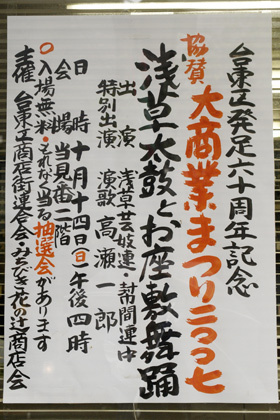 台東区発足六十周年記念
協賛 大商業まつり二〇〇七
浅草太鼓とお座敷舞踊
出演 浅草芸妓連・幇間連中
特別出演 演歌 高瀬一郎
日時 十月十四日(日)午後四時
会場 当見番二階
○入場無料・それなく当る抽選会があります
主催 台東区商店街連合会・みちびき花の辻商店会